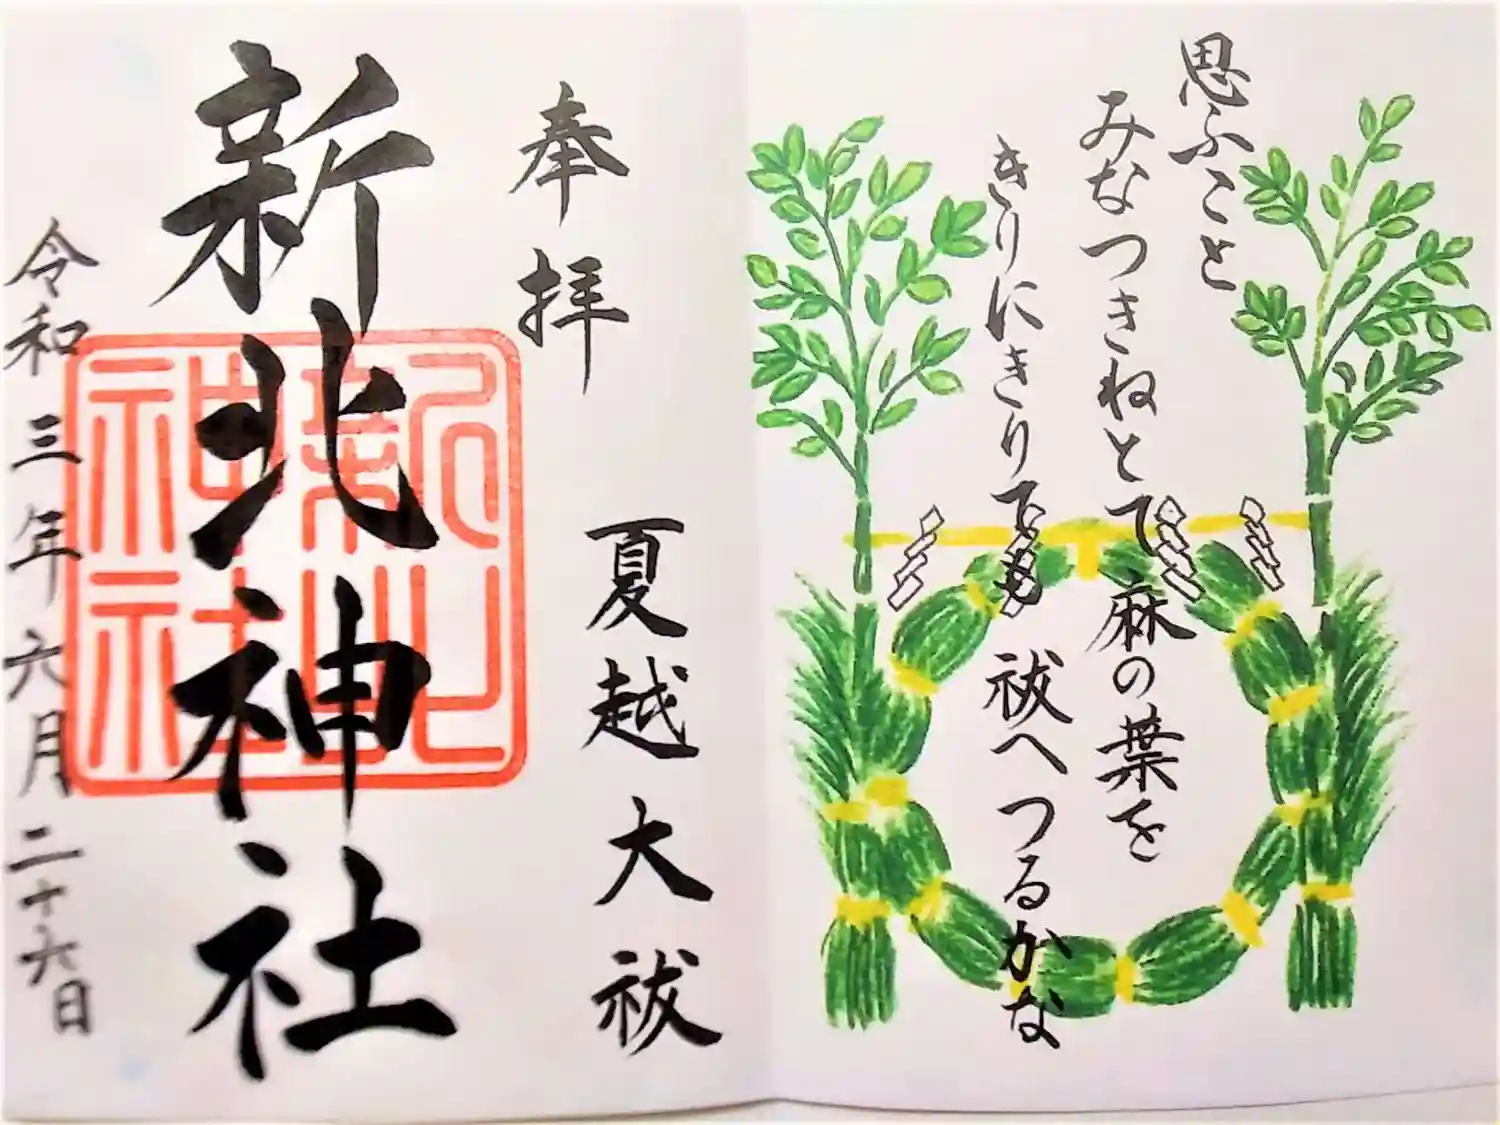 思ふこと
みなつきねとて麻の葉を
きりにきりても祓へつるかな
奉拝
夏越大祓
新北神社
令和三年六月二十六日